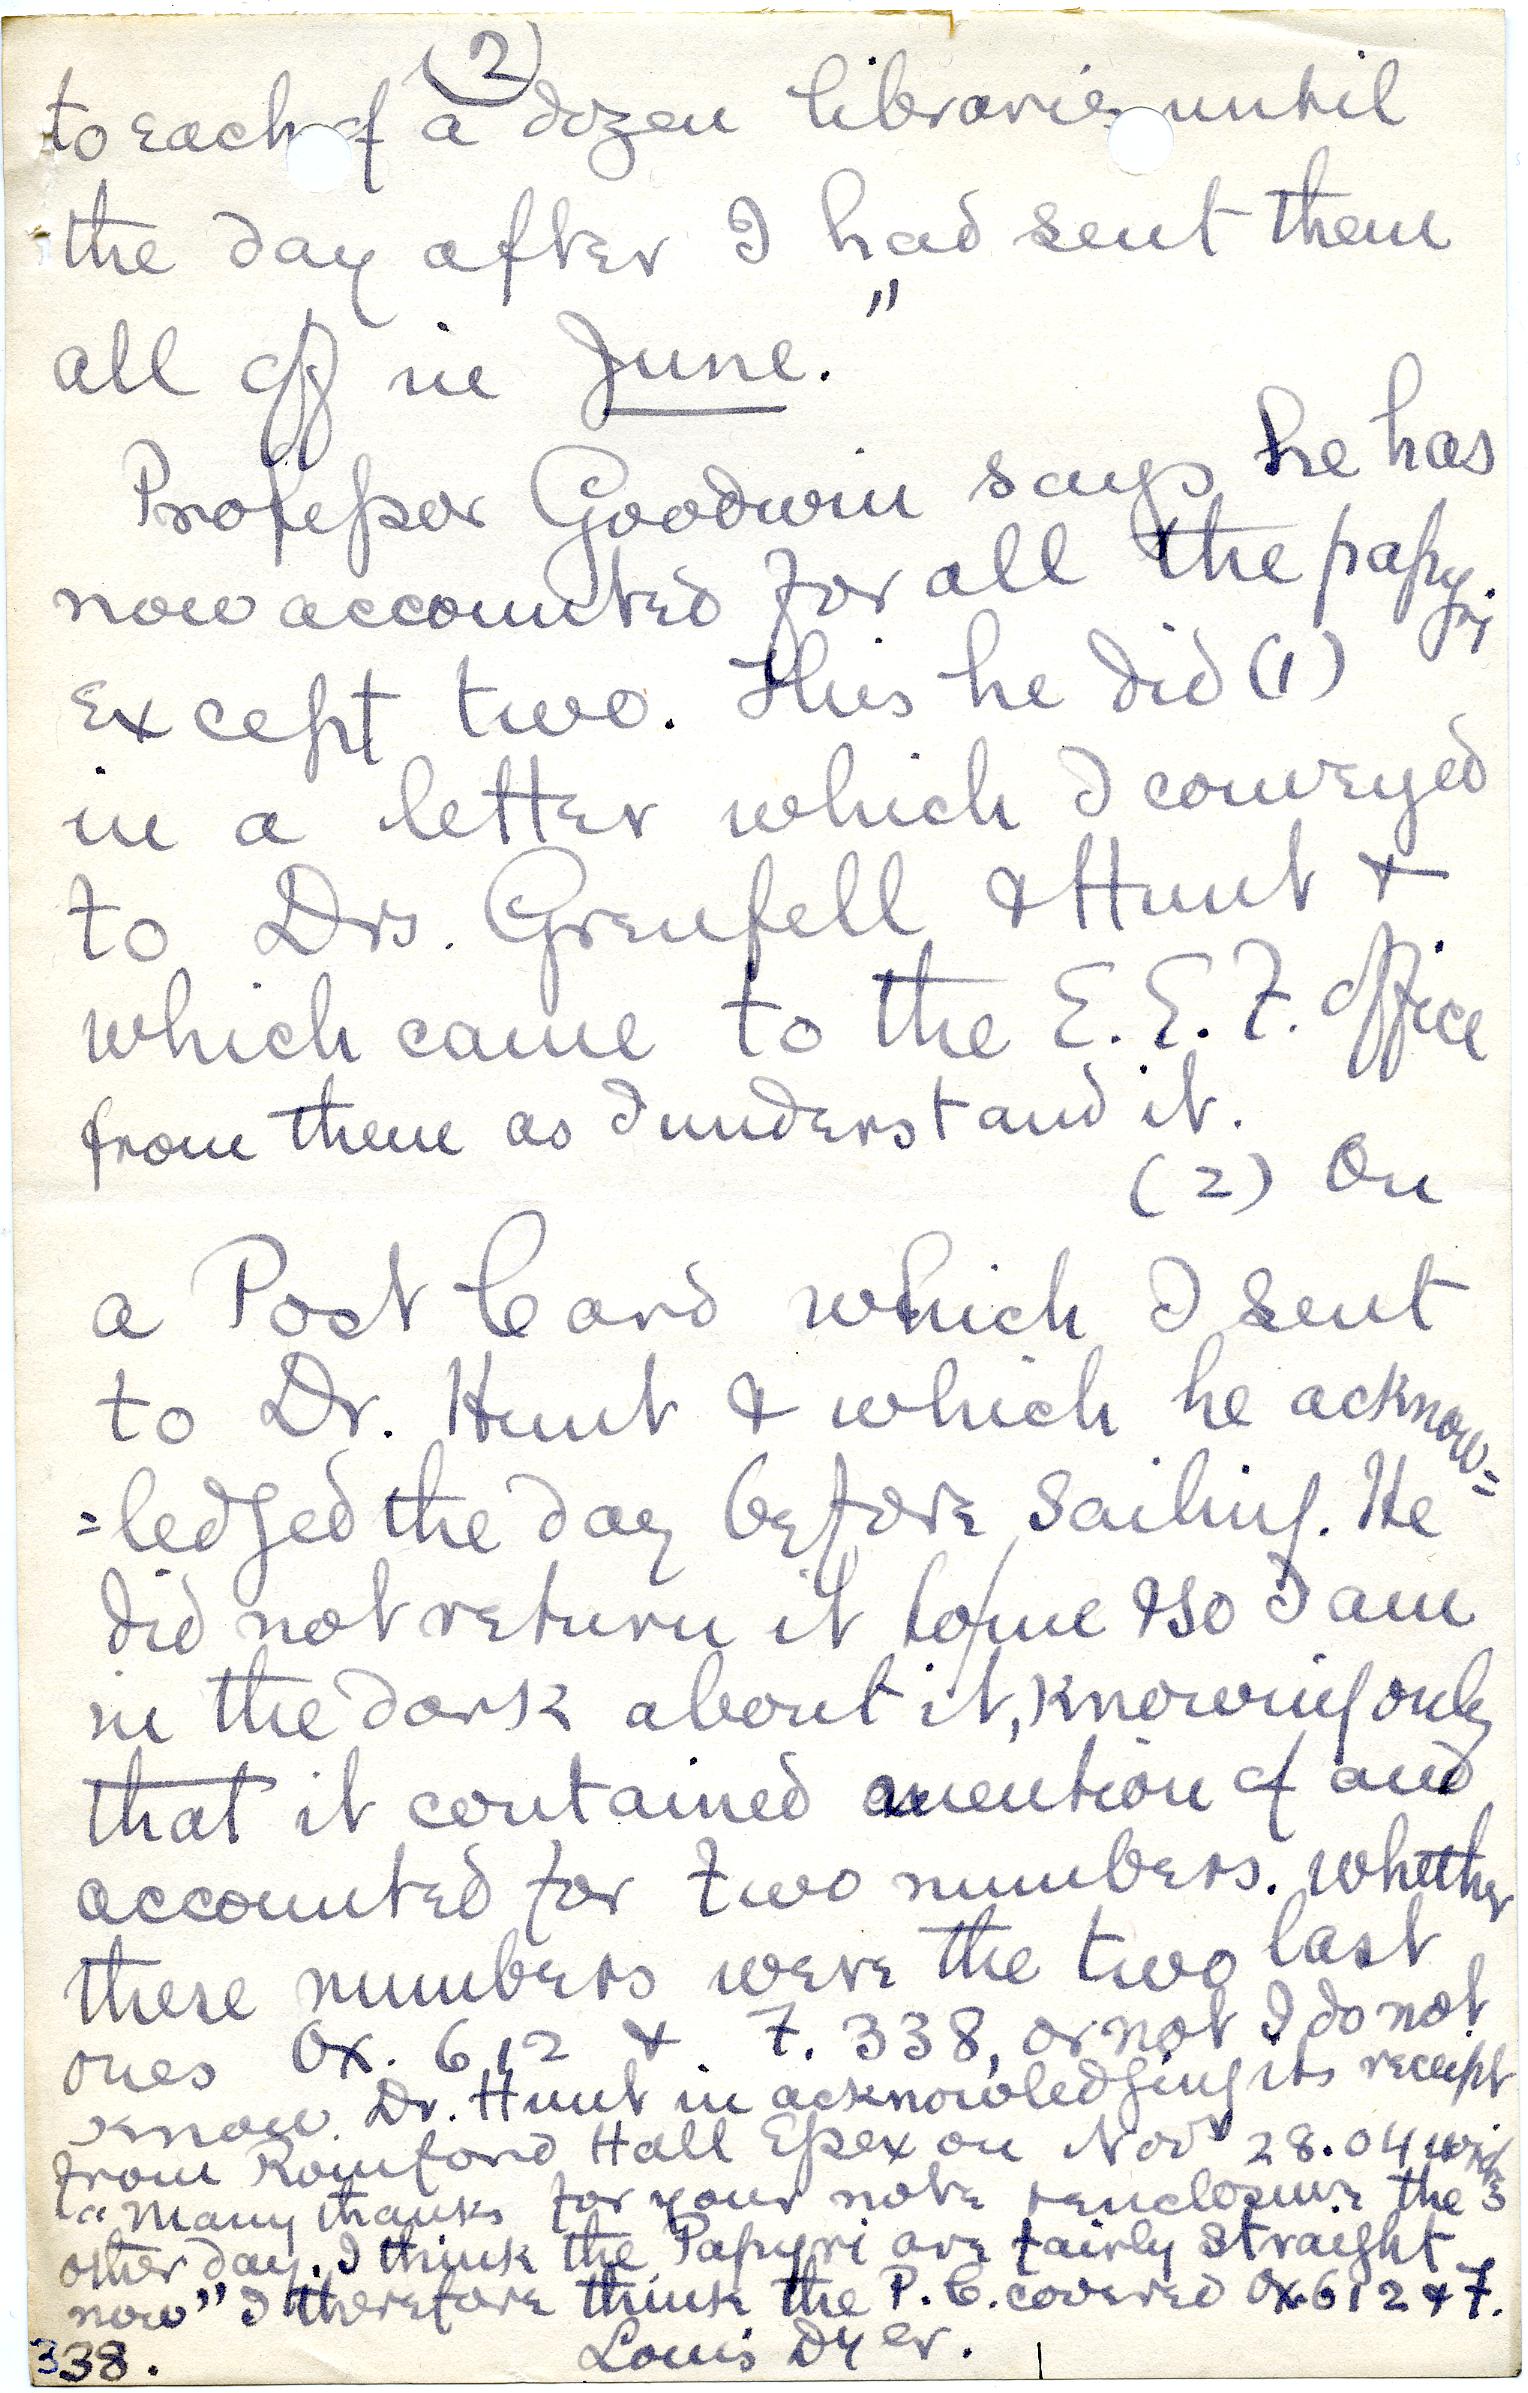 (2)
to each of a dozen libraries until
the day after I had sent them
all off in June."
Professor Goodwin says he has
now accounted for all the papyri
except two. This he did (1)
in a letter which I conveyed
to Drs. Grenfell & Hunt &
which came to the E. E. F. office
from them as I understand it.
(2) On
a Post Card which I sent
to Dr. Hunt & which he acknow=
=ledged the day before sailing. He
did not return it to me & so I am
in the dark about it, knowing only
that it contained mention of and
accounted for two numbers. Whether
these numbers were the two last
ones Ox. 612 & F. 338, or not I do not
know. Dr. Hunt in acknowledging its receipt
from Romford Hall Essex on Nov 28.04 writes
"Many thanks for your note & enclosure the
other day. I think the Papyri are fairly straight
now" I therefore think the P.C. covered Ox 612 & F.
338.
Louis Dyer.